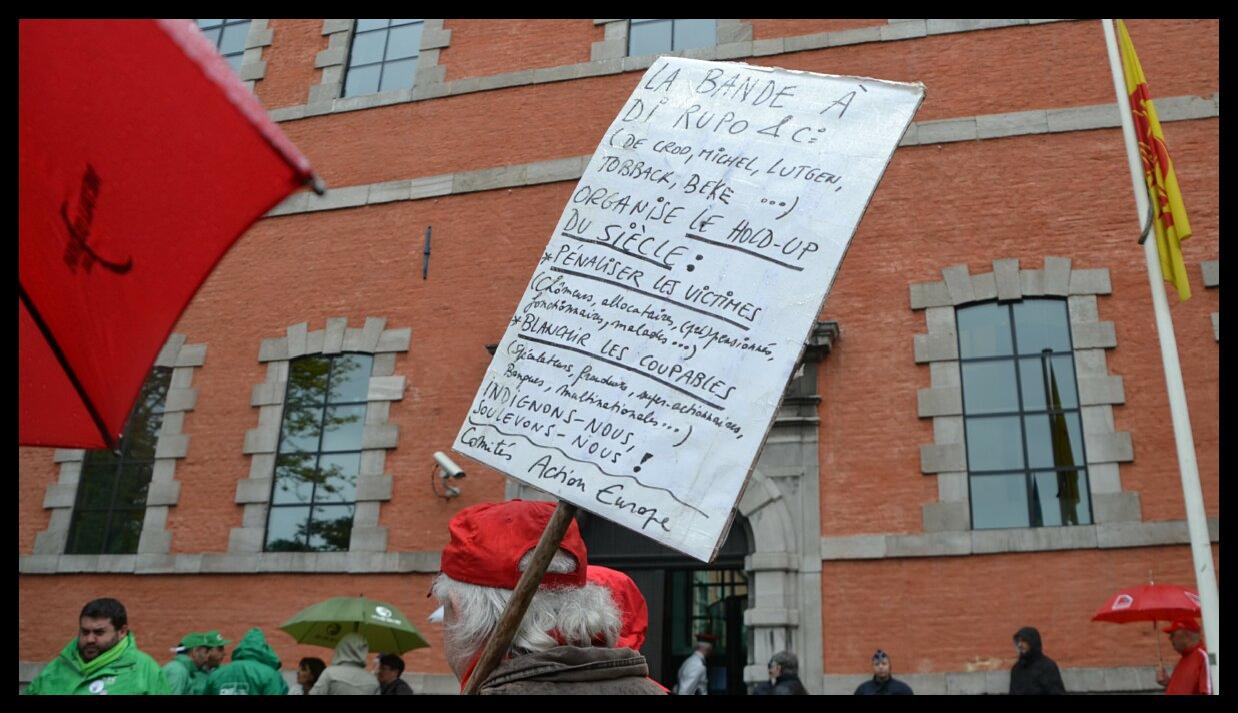 LA BANDE À
Di RUPO & Cie
(DE CROO, MiCHEL, LUTGEN,
TOBBACK, BEKE ...)
ORGANiSE LE HOLD-UP
DU SiÈCLE :
*PÉNALiSER LES ViCTiMES
(Chômeurs, allocataires, (pré)pensionnés,
fonctionnaires, malades...)
*BLANCHiR LES COUPABLES
(Spéculateurs, fraudeurs, super-actionnaires,
Banques, multinationales...)
iNDiGNONS-NOUS,
SOULEVONS-NOUS !
Comités Action Europe